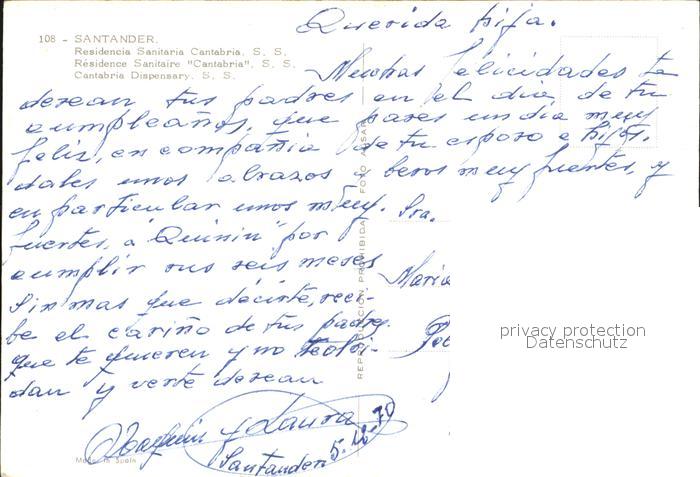 108 - SANTANDER.
Residencia Sanitaria Cantabria. S. S.
Résidence Sanitaire "Cantabria". S. S.
Cantabria Dispensary. S. S.
Querida hija.
Muchas felicidades te
desean tus padres en el dia de tu
cumpleaños, que pases un dia muy
feliz, en compañia de tu esposo e hijos,
dales unos abrazos y besos muy fuertes, y
en particular unos muy.
fuertes, a "Quinin" por
cumplir sus seis meses
Sin mas que decirte, reci-
be el cariño de tus padres.
que te quieren y no te olvi-
dan y verte desean
Joaquin y Laura
Santander 5. 70
Sra.
Maria
REPRODUCCIÓN PROHIBIDA
Made in Spain
privacy protection
Datenschutz